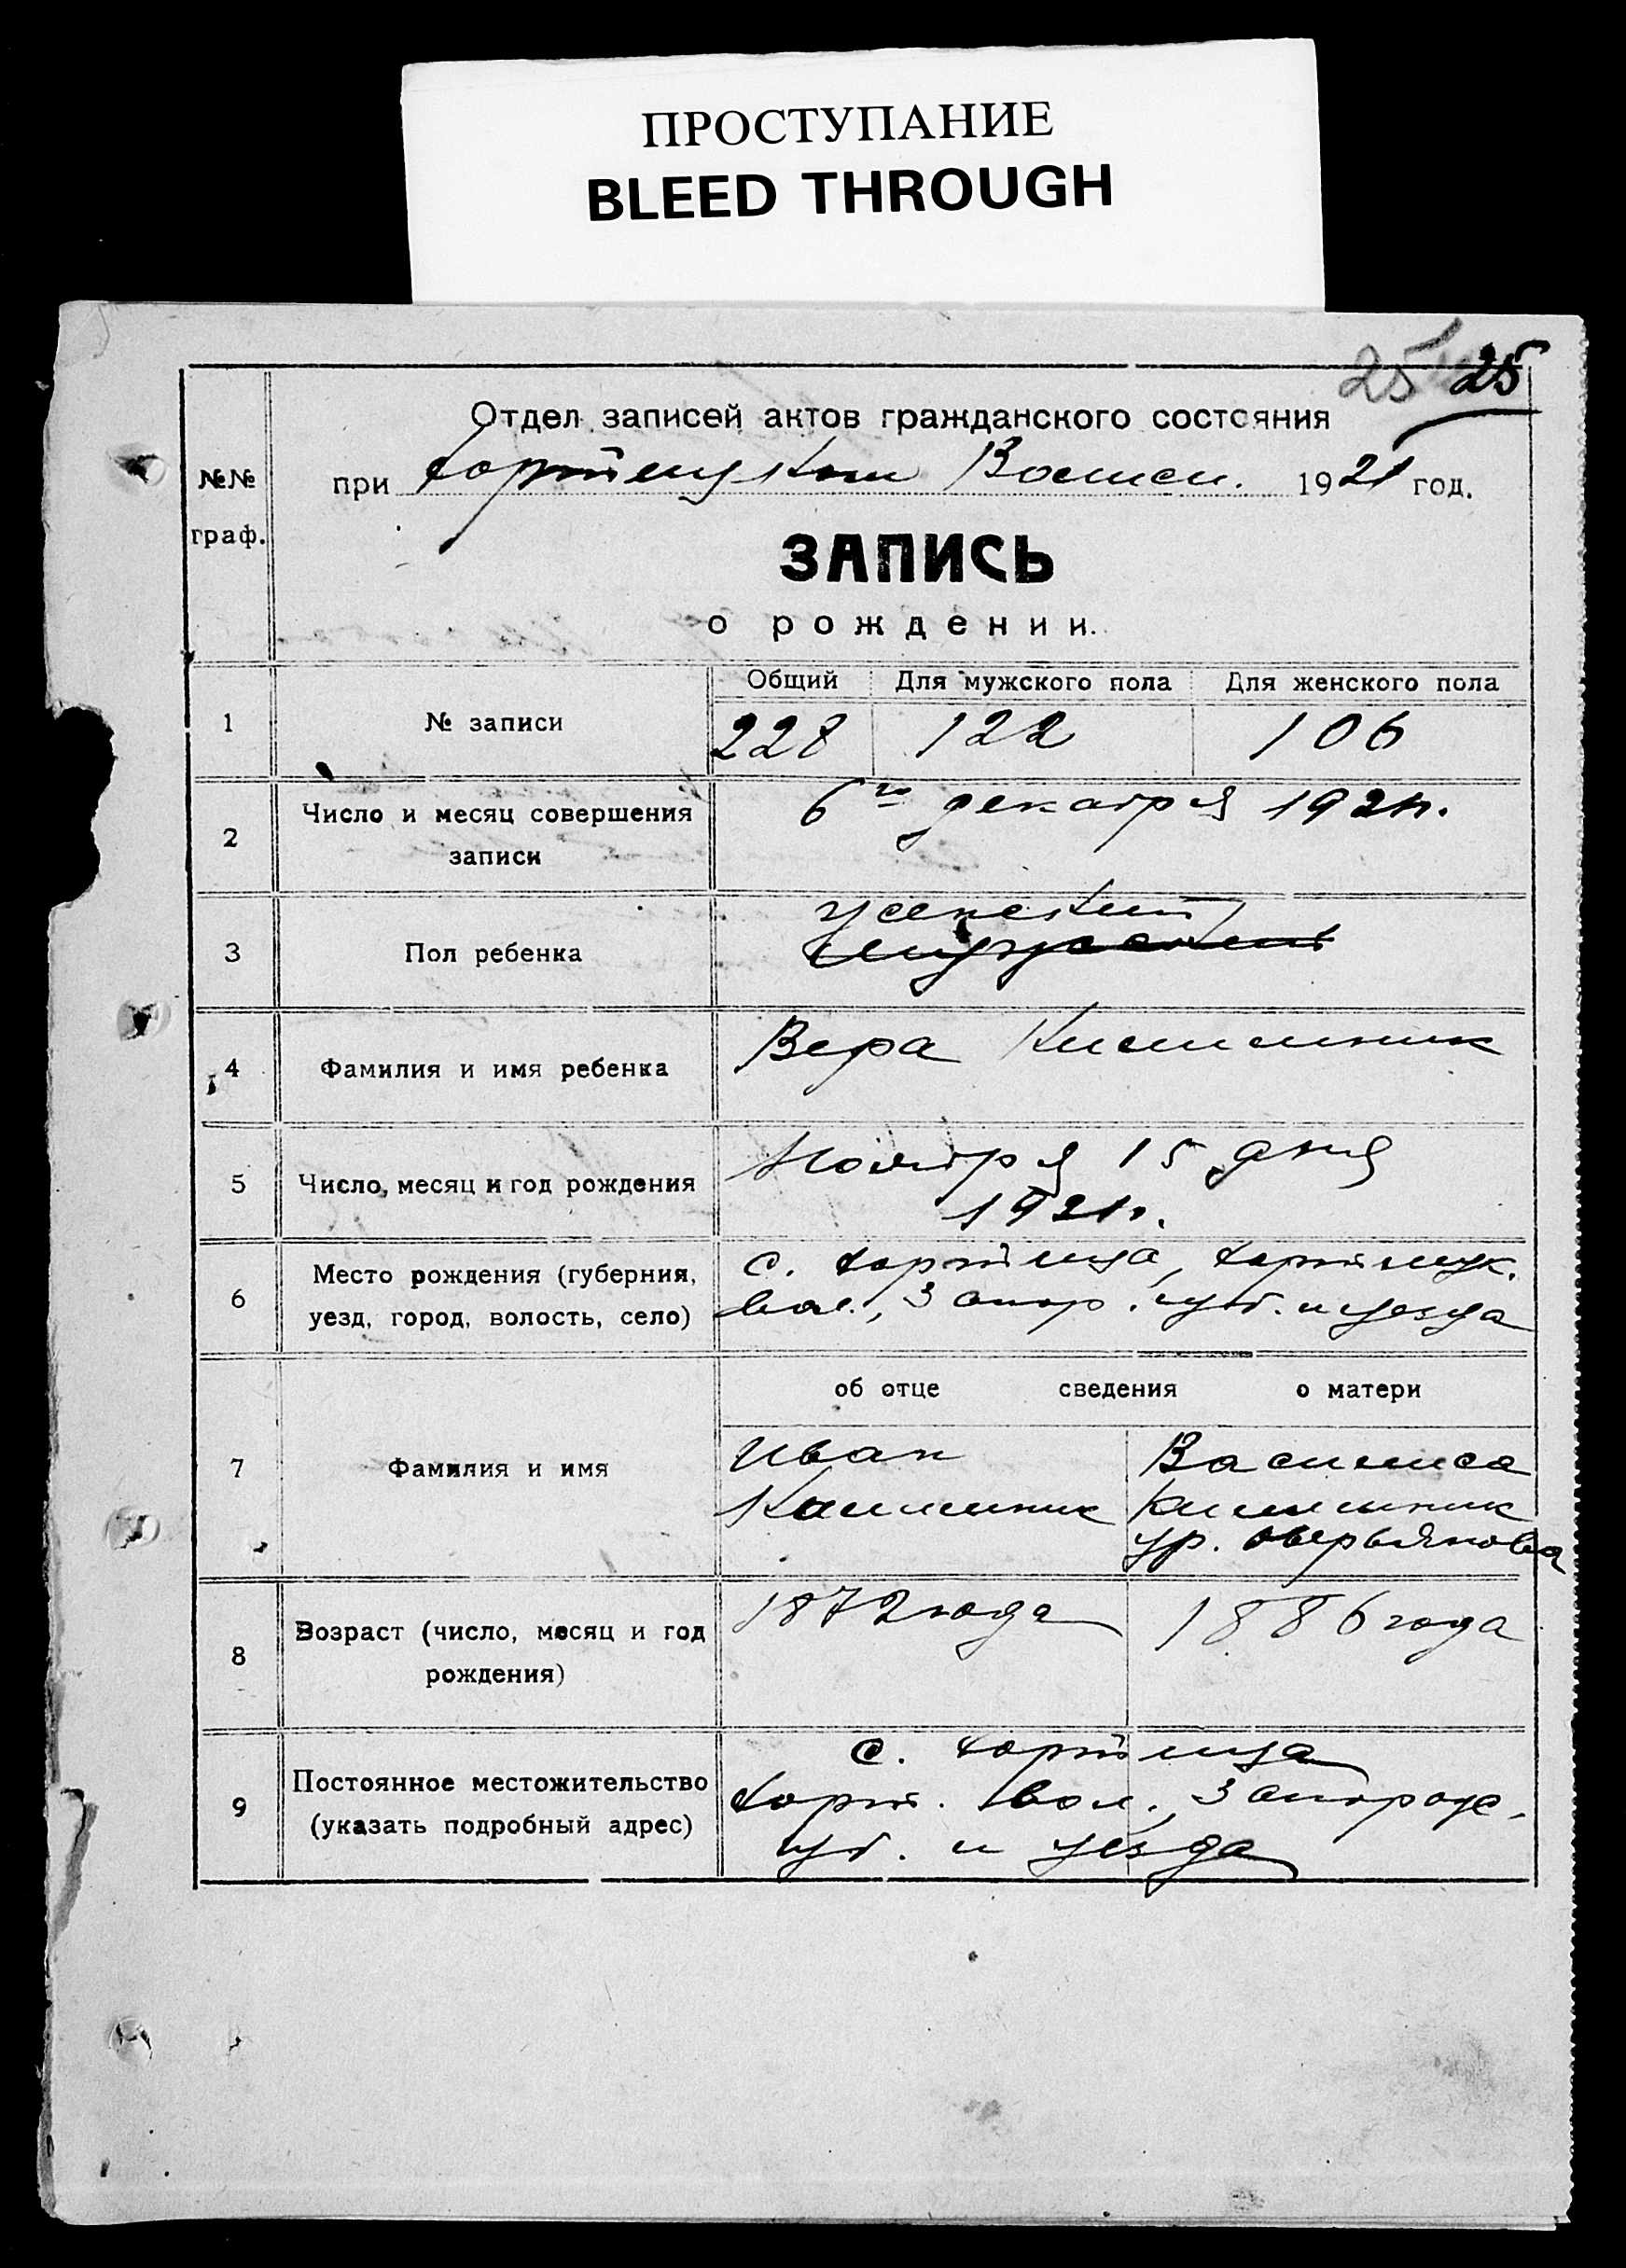 ПРОСТУПАНИЕ
BLEED THROUGH
25 25
Отдел записей актов гражданского состояния
№№ граф.
при Хортицком Волисп. 1921 год.
ЗАПИСЬ
о рождении.
Общий Для мужского пола Для женского пола
1 № записи 228 122 106
2 Число и месяц совершения записи
6го декабря 1921г.
3 Пол ребенка
женский
мужской
4 Фамилия и имя ребенка
Вера
5 Число, месяц и год рождения
Ноября 15 дня
1921г.
6 Место рождения (губерния,
уезд, город, волость, село)
с. Хортица, Хортицк.
вол., Запор. губ. и уезда
об отце сведения о матери
7 Фамилия и имя
Иван
Василиса
ур. Оверьянова
8 Возраст (число, месяц и год
рождения)
1872 года 1886 года
9 Постоянное местожительство
(указать подробный адрес)
с. Хортица
Хорт. вол., Запорож.
губ. и уезда